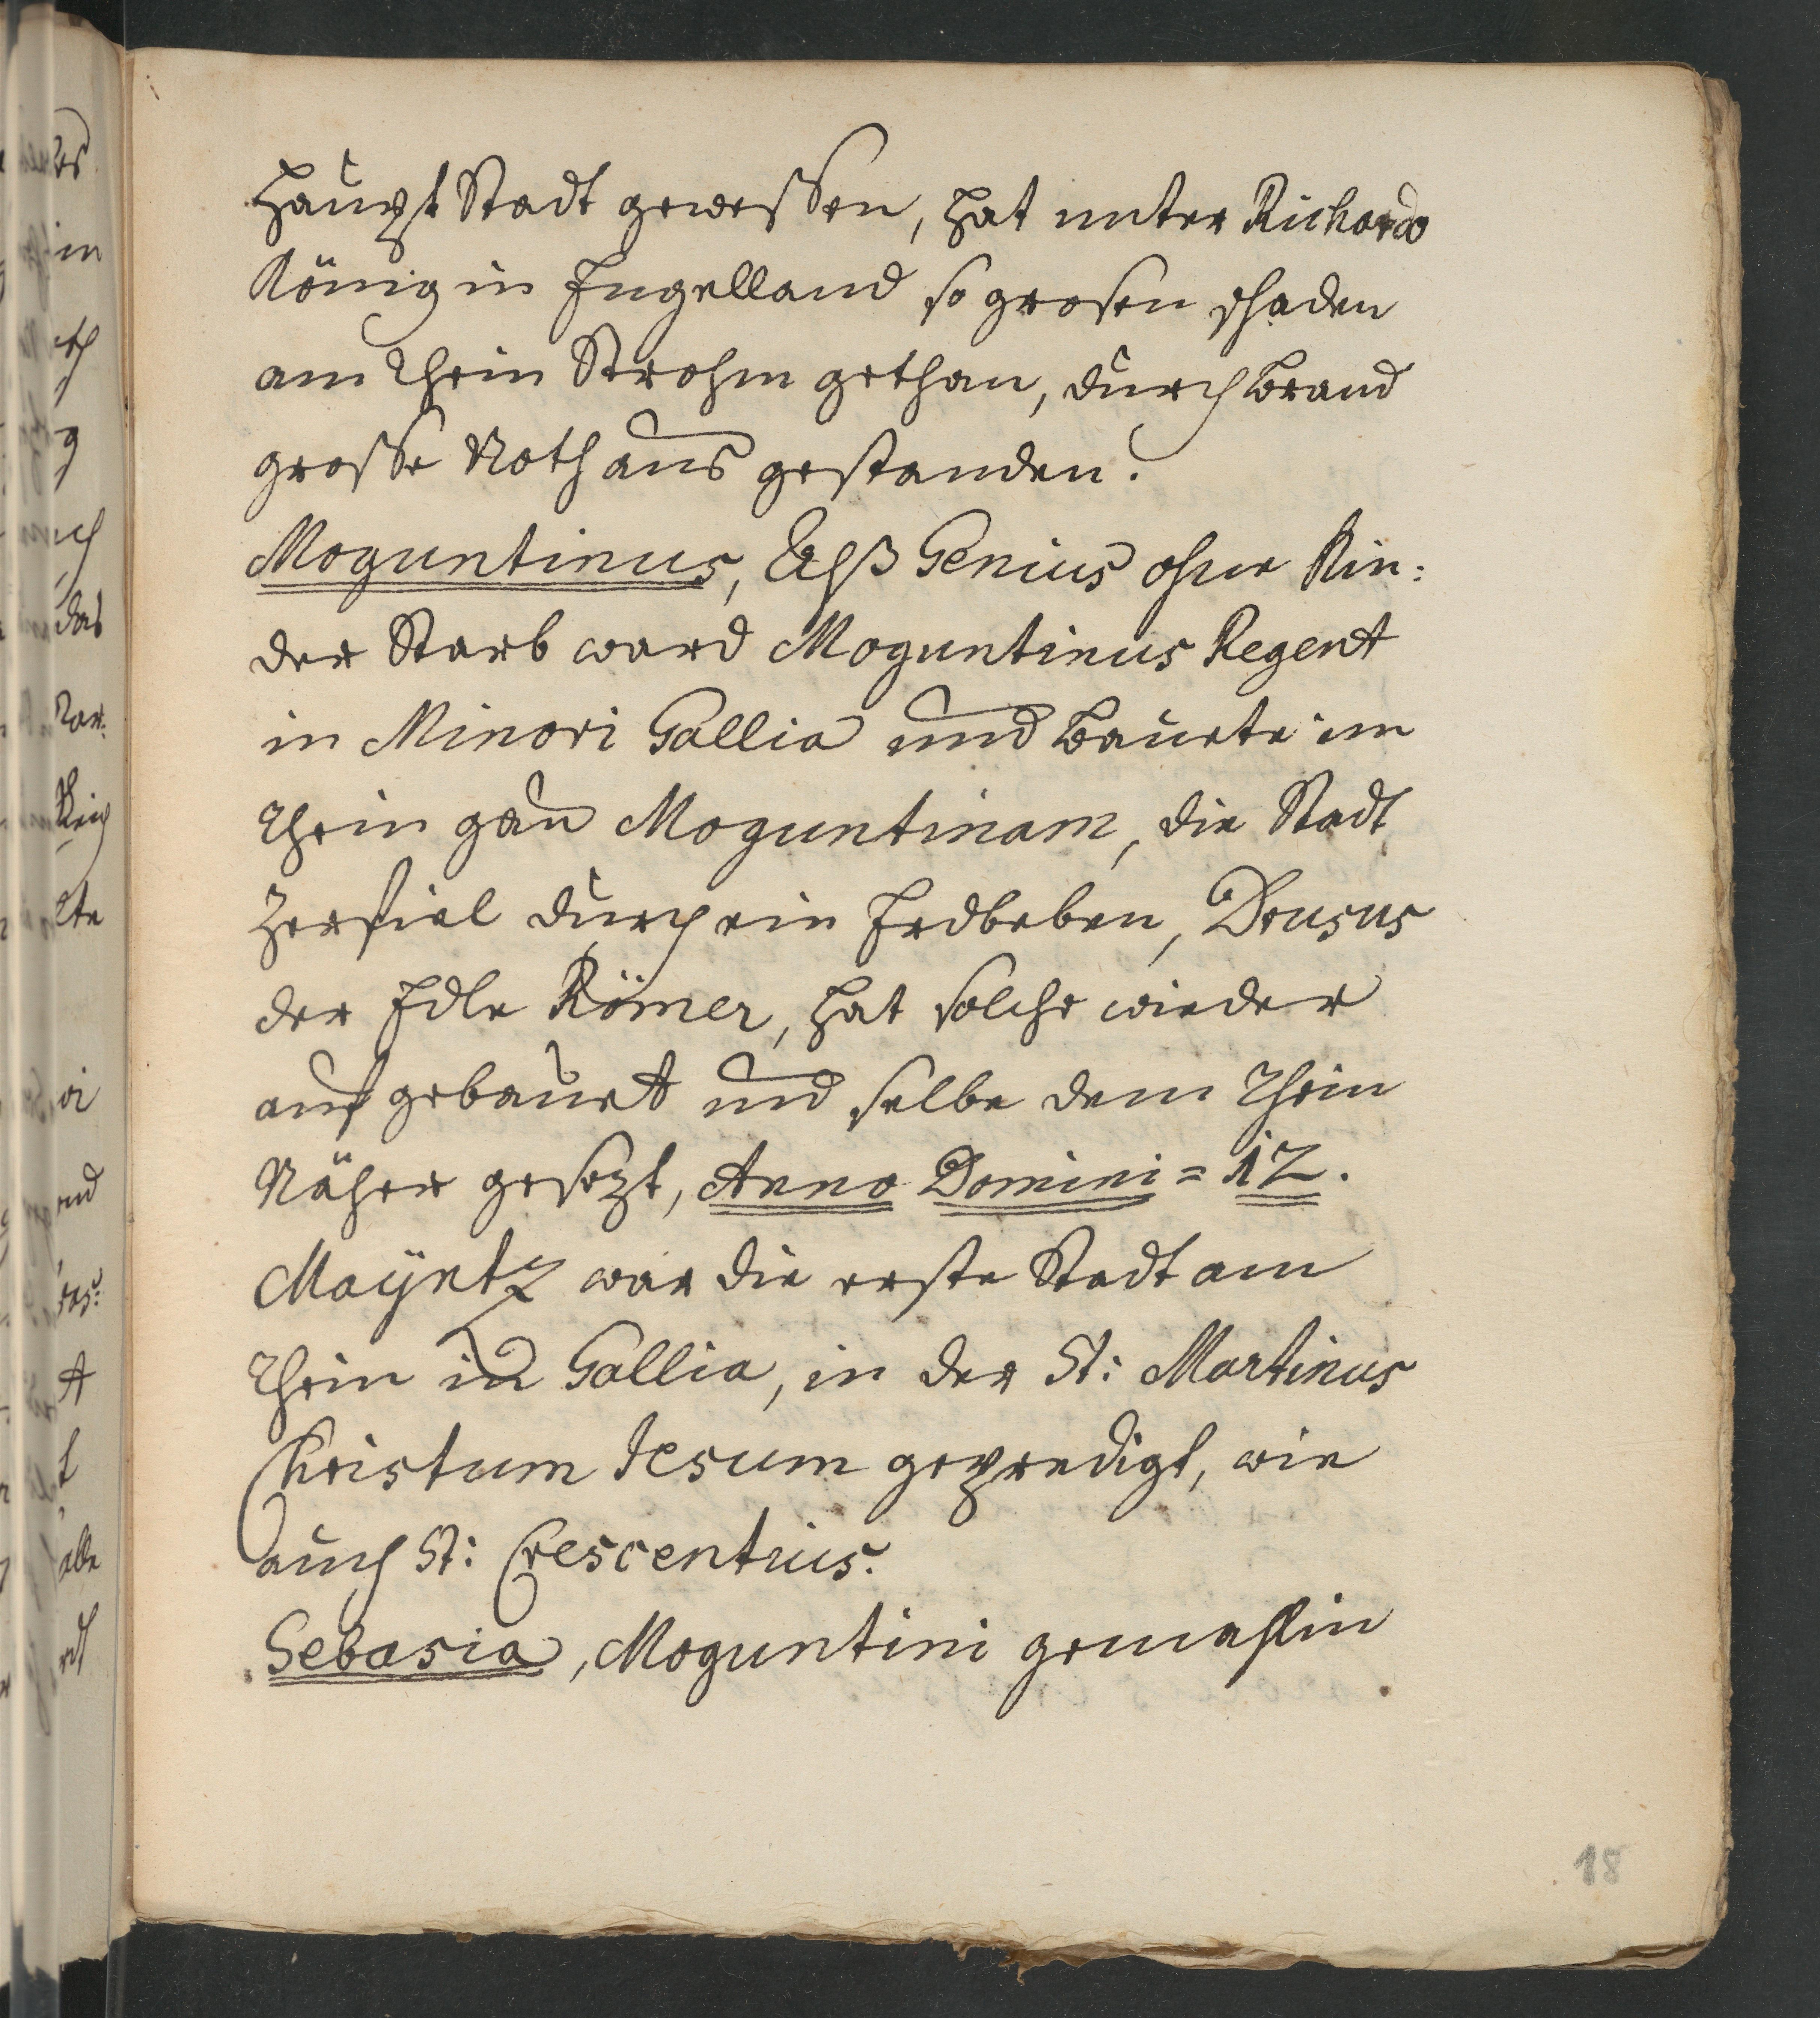 Haupt Stadt gewessen, hat unter Richardo
König in Engelland so grosen schaden
am Rhein Strohm gethan, durch Brand
grosse Noth aus gestanden.
Moguntinus, Alß Genius ohne Kin:
der Starb ward Moguntinus Regent
in Minori Gallia und Bauete im
Rhein gau Moguntinam, die Stadt
Zerfiel durch ein Erdbeben, Drusus
der Edle Römer, hat solche wieder
auf gebauet und selbe dem Rhein
Näher gesezt, Anno Domini = 12.
Mayntz war die erste Stadt am
Rhein in Gallia, in der St: Martinus
Christum Iesum geprediget, wie
auch St: Crescentius.
Sebasia, Moguntini gemahlin
18